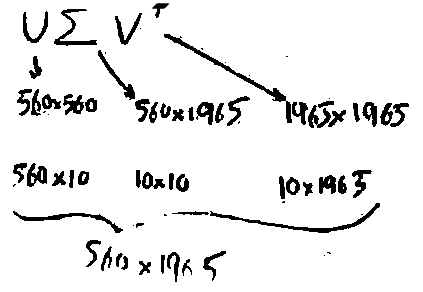 U Σ V^T
560×560 560×1965 1965×1965
560×10 10×10 10×1965
560×1965